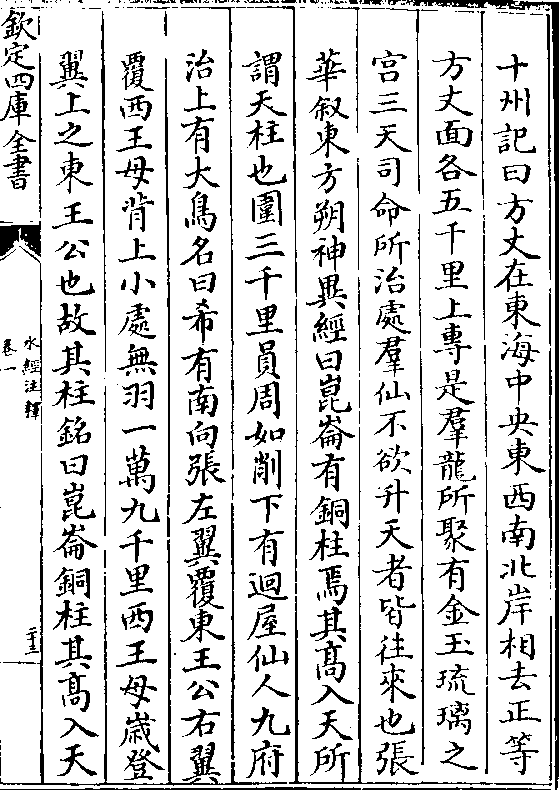 十州記曰方丈在東海中央東西南北岸相去正等
方丈面各五千里上專是羣龍所聚有金玉琉璃之
宫三天司命所治處羣仙不欲升天者皆往來也張
華叙東方朔神異經曰崑崙有銅柱焉其髙入天所
謂天柱也圍三千里員周如削下有迴屋仙人九府
治上有大鳥名曰希有南向張左翼覆東王公右翼
覆西王母背上小處無羽一萬九千里西王母嵗登
翼上之東王公也故其柱銘曰崑崙銅柱其髙入天
欽定四庫全書
水經注釋
卷一
二十三